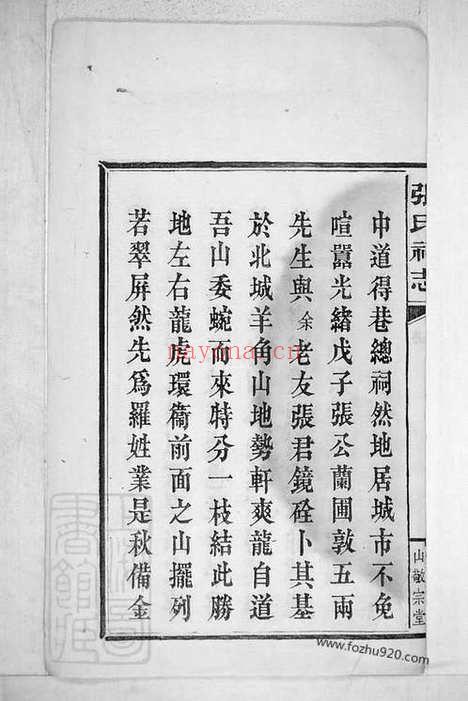 張氏祠志
山敬宗堂
中道得巷總祠然地居城市不免
喧囂光緒戊子張公蘭圃敦五兩
先生與余老友張君鏡砼卜其基
於北城羊角山地勢軒爽龍自道
吾山委蜿而來特分一枝結此勝
地左右龍虎環衞前面之山擺列
若翠屏然先爲羅姓業是秋備金
nayona.cn
www.fozhu920.com